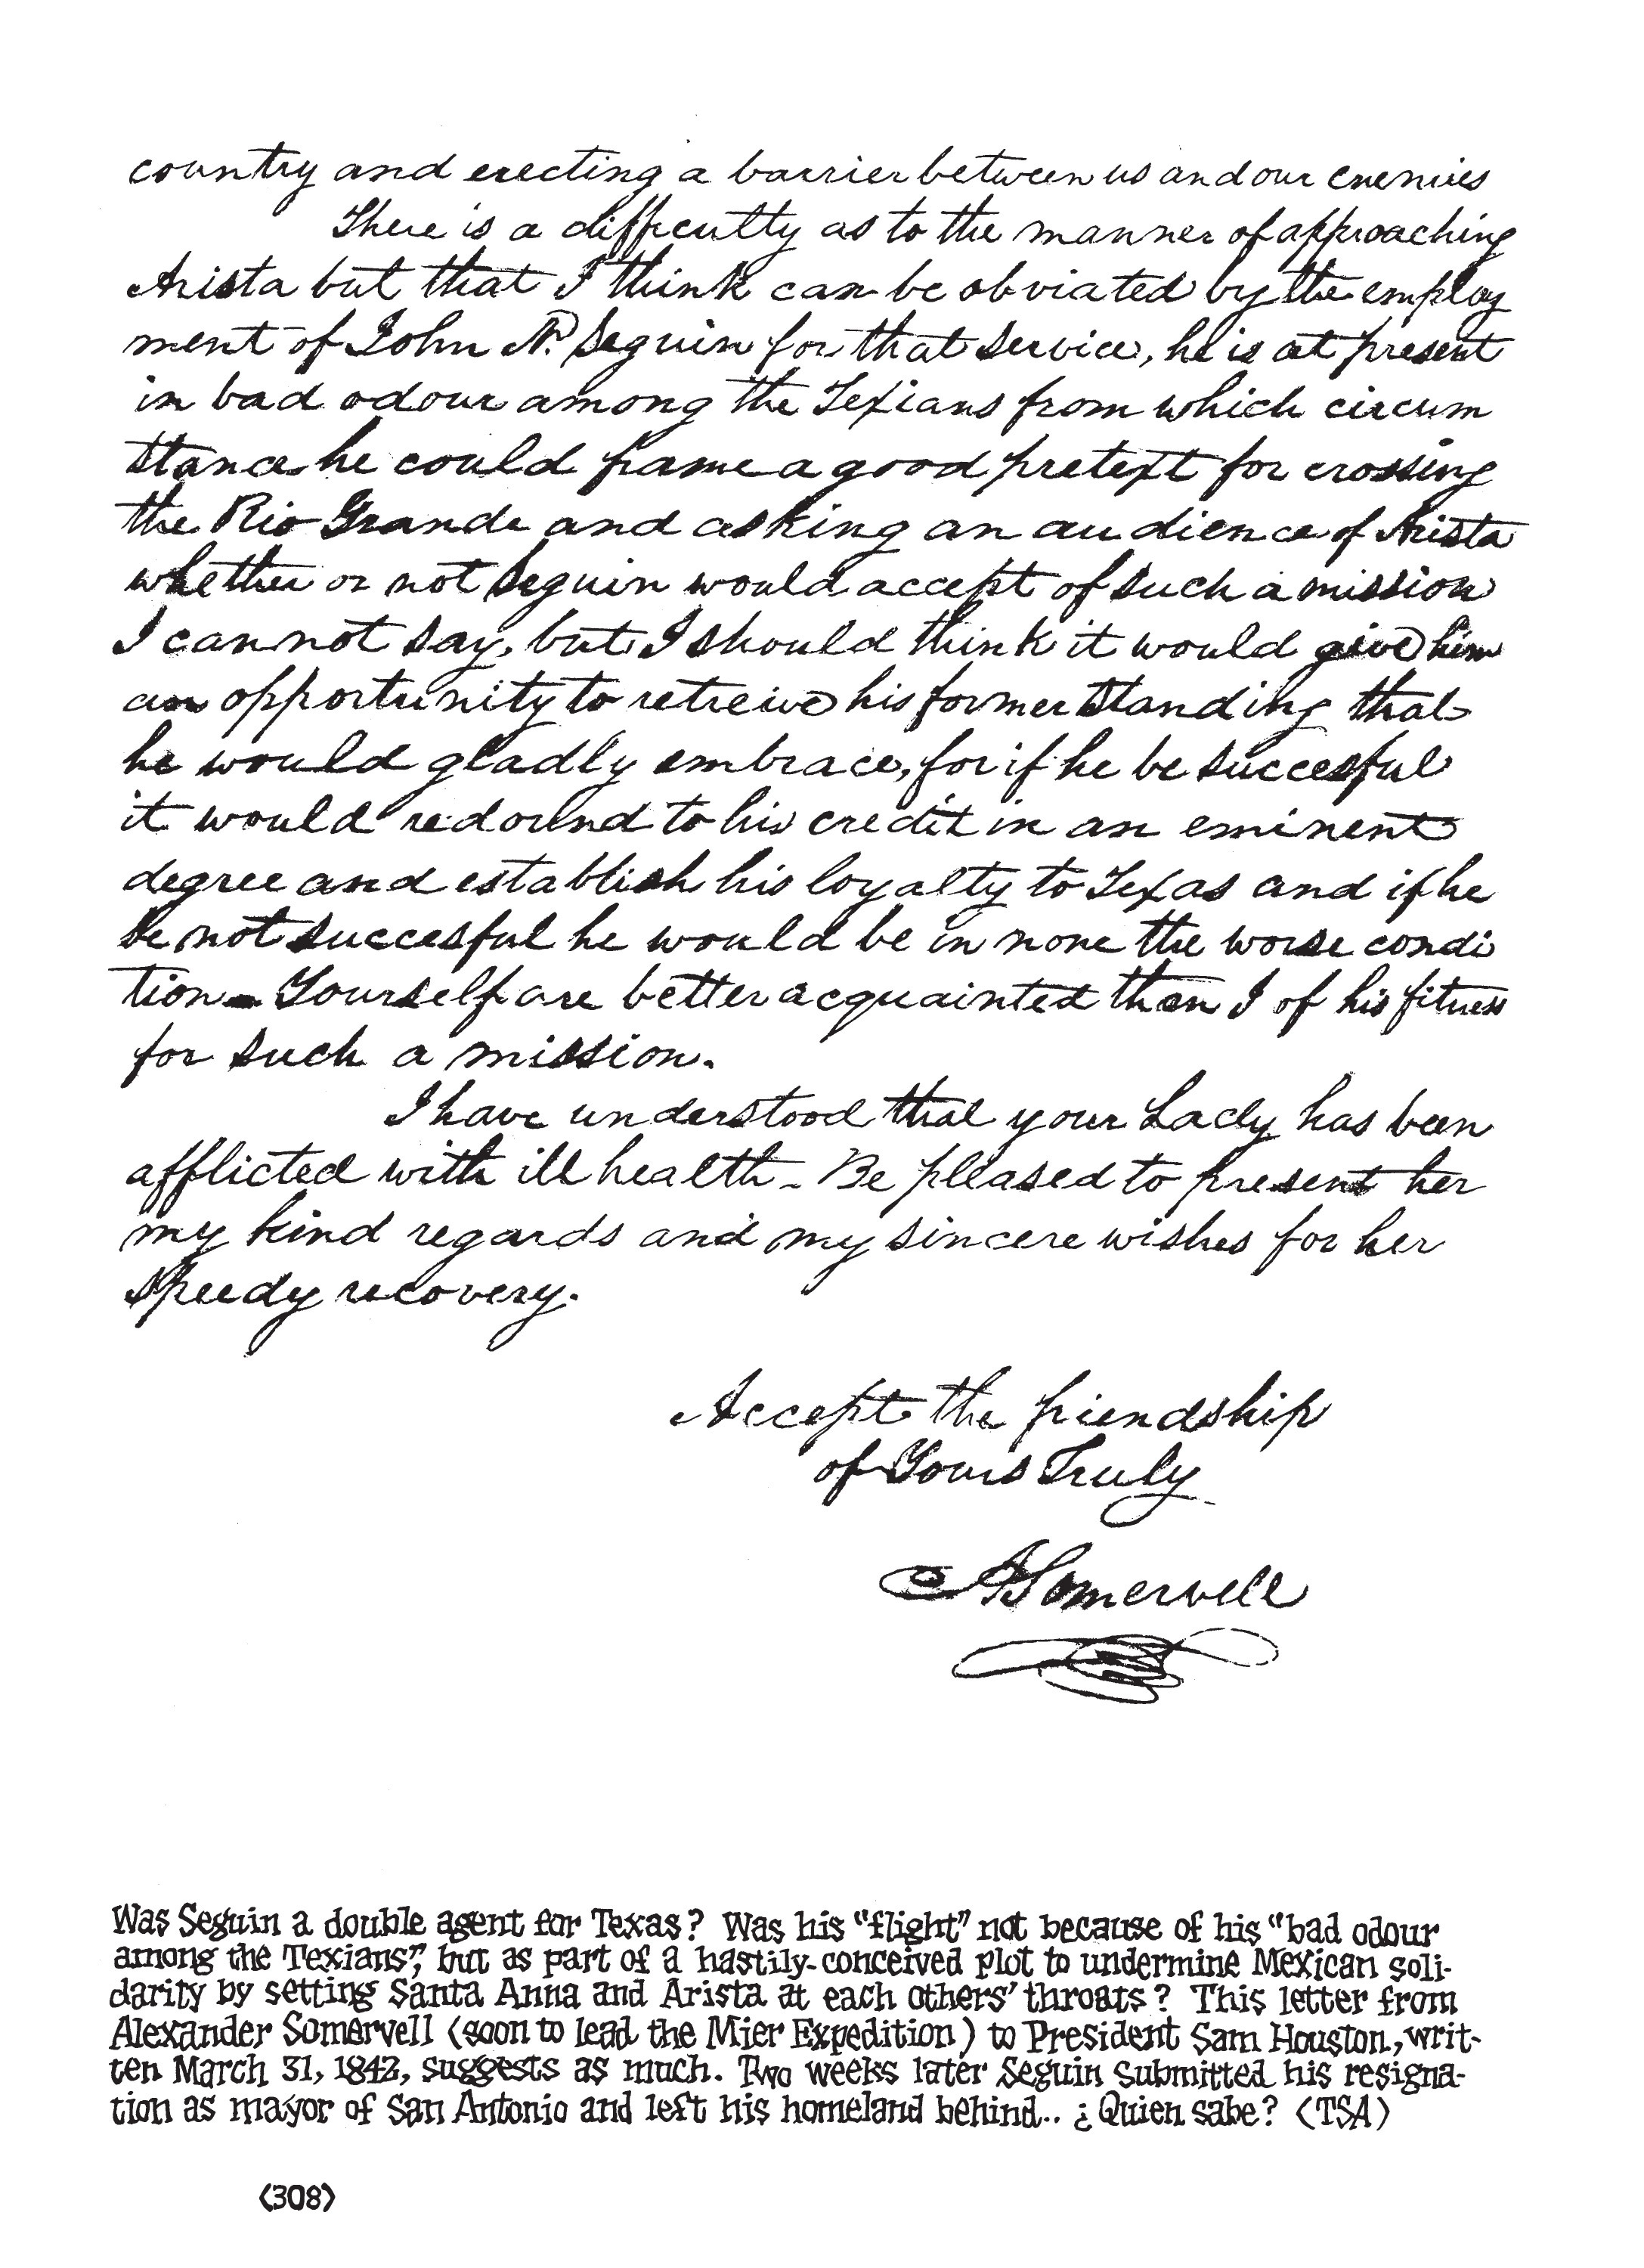 country and erecting a barrier between us and our enemies
There is a difficulty as to the manner of approaching
Arista but that I think can be obviated by the employ
ment of John N. Seguin for that service, he is at present
in bad odour among the Texians from which circum
stance he could frame a good pretext for crossing
the Rio Grande and asking an audience of Arista
whether or not Seguin would accept of such a mission
I can not say, but I should think it would give him
an opportunity to retreive his former standing that
he would gladly embrace, for if he be succesful
it would redound to his credit in an eminent
degree and establish his loyalty to Texas and if he
be not succesful he would be in none the worse condi
tion - Yourself are better acquainted than I of his fitness
for such a mission.
I have understood that your Lady has been
afflicted with ill health - Be pleased to present her
my kind regards and my sincere wishes for her
speedy recovery.
Accept the friendship
of Yours Truly
A Somervell
Was Seguin a double agent for Texas? Was his "flight" not because of his "bad odour
among the Texians", but as part of a hastily-conceived plot to undermine Mexican soli-
darity by setting Santa Anna and Arista at each others' throats? This letter from
Alexander Somervell (soon to lead the Mier Expedition) to President Sam Houston, writ-
ten March 31, 1842, suggests as much. Two weeks later Seguin submitted his resigna-
tion as mayor of San Antonio and left his homeland behind.. ¿Quien sabe? (TSA)
(308)